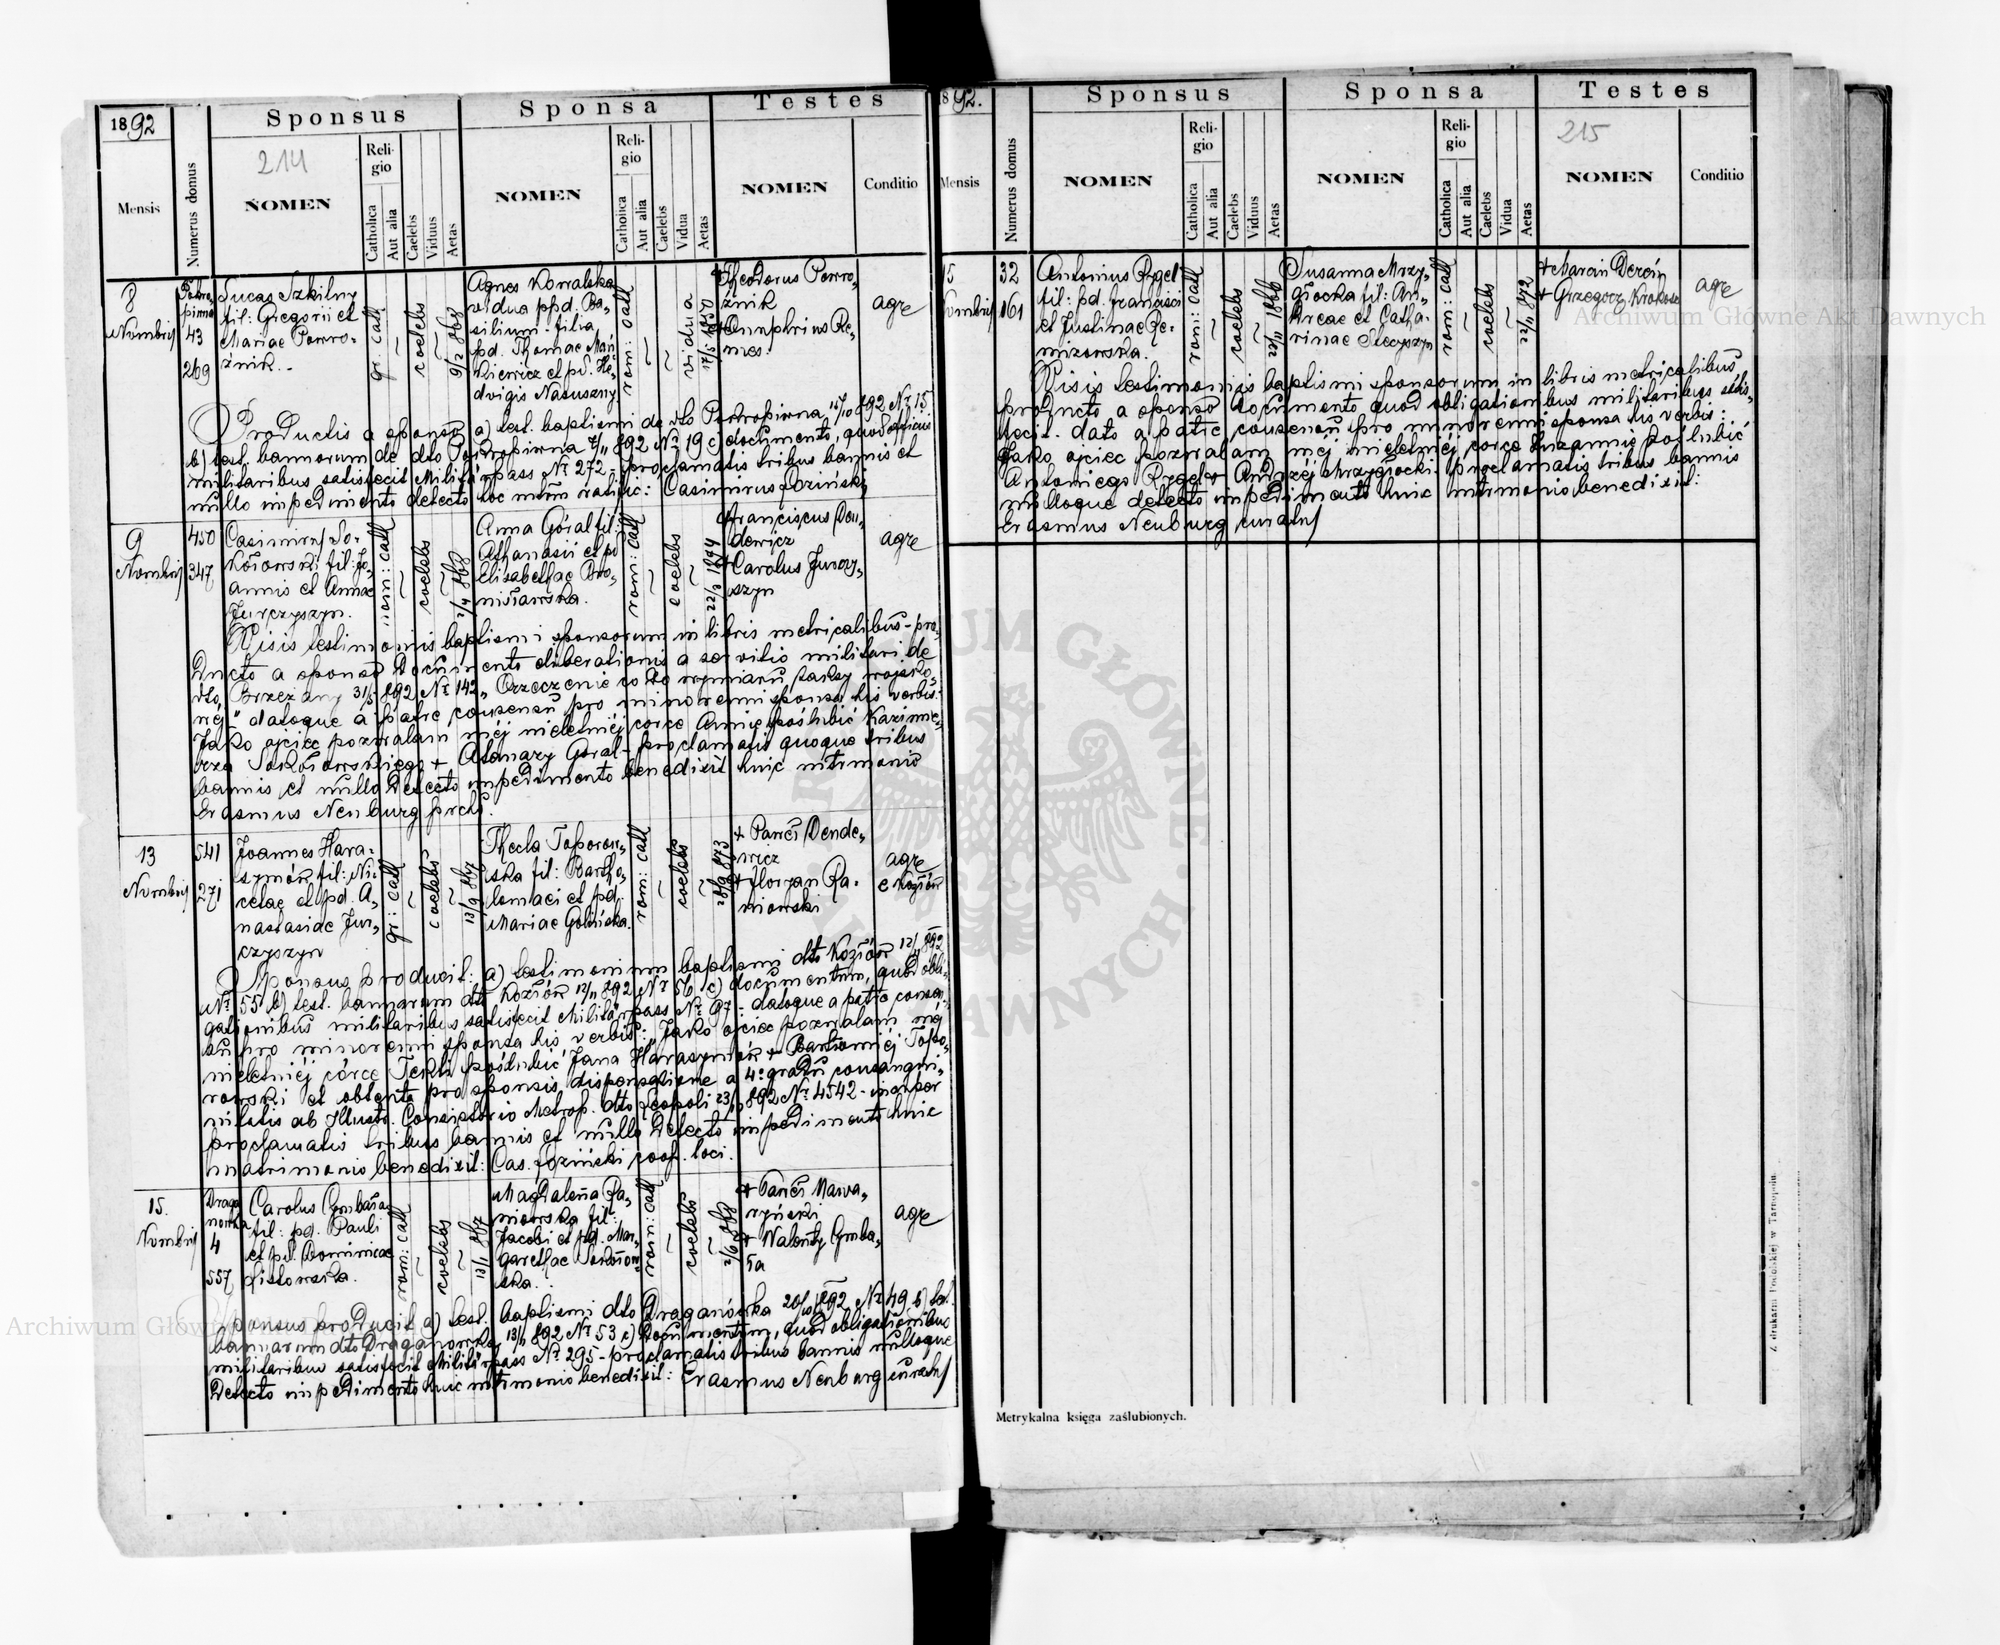 1892
Sponsus
Sponsa
Testes
214
Mensis
Numerus domus
NOMEN
Religio
Catholica
Aut alia
Caelebs
Viduus
Aetas
NOMEN
Religio
Catholica
Aut alia
Caelebs
Vidua
Aetas
NOMEN
Conditio
8
Nvmbris
43
269
Lucas Szkilny
fil: Gregorii et
Mariae Powro-
źnik.
gr. cath
coelebs
9/2 868
Agnes Kowalska
vidua ppd. Ba-
silium filia
pd. Thomae
et pd. He-
dvigis
rom: cath
vidua
17/5 850
Theodorus Powro-
źnik
+ Onuphrius Re-
mes.
agre
Productis a sponso a) test. baptismi de dto 15/10 892 Nr 15
b) test. bannorum de dto 7/11 892 Nr 19 c) documento, quod officiis
militaribus satisfecit Militärpass Nr 272 - proclamatis tribus bannis et
nullo impedimento detecto hoc mtrm ratific: Casimirus Łoziński
9
Nvmbris
450
347
Casimirus So-
kołowski fil: Jo-
annis et Annae
Jurczyszyn.
rom: cath
coelebs
2/4 868
Anna Góral fil:
Athanasii et pd
Elisabethae Bro-
nisławska.
rom: cath
coelebs
22/3 1874
Franciscus Den-
dewicz
+ Carolus Jurczy-
szyn
agre
Visis testimoniis baptismi sponsorum in libris metricalibus - pro-
ducto a sponso documento liberationis a servitio militari de
dto Brzeżany 31/5 892 Nr 142 „Orzeczenie co do wymiaru taksy wojsko-
wej" datoque a patre consensu pro minorenni sponsa his verbis:
Jako ojciec pozwalam méj nieletniéj córce Annie poślubić Kazimie-
rza Sokołowskiego + Atanazy Góral - proclamatis quoque tribus
bannis et nullo detecto impedimento benedixit huic mtrmonio
Erasmus Neuburg
13
Nvmbris
541
271
Joannes Hara-
szymów, fil: Ni-
cetae et pd. A-
nastasiae Jur-
czyszyn
gr: cath
coelebs
13/9 867
Thecla Toporow-
ska fil: Bartho-
lomaei et pd.
Mariae Golińska.
rom: cath
coelebs
28/9 873
+ Dende-
wicz
+ Floryan Ra-
niowski
agre
e Kozłów
Sponsus producit: a) testimonium baptismi dto Kozłów 12/11 892
Nr 55 b) test. bannorum dto Kozłów 12/11 892 Nr 56 c) documentum, quod obli-
gationibus militaribus satisfecit Militärpass Nr 97 - datoque a patre consen-
su pro minorenni sponsa his verbis: „Jako ojciec pozwalam méj
nieletniéj córce Tekli poślubić Jana Haraszymów + Bartłomiéj Topo-
rowski et obtenta pro sponsis dispensatione a 4º gradu consangui-
nitatis ab Illustr. Consistorio Metrop. dto Leopoli 23/10 892 Nr 4542 - insuper
proclamatis tribus bannis et nullo detecto impedimento huic
matrimonio benedixit: Cas. Łoziński coop. loci.
15.
Nvmbris
Draga
nowka
4
557
Carolus Gmbała
fil: pd. Pauli
et pd. Dominicae
Lisowska.
rom: cath
coelebs
13/1 867
Magdalena Ra-
niowska fil:
Jacobi et pd. Mar-
garethae Sokołow-
ska.
rom: cath
coelebs
2/6 868
+ Nawa-
ryński
+ Walenty Gmba-
ła
agre
Sponsus producit a) test. baptismi dto Draganówka 20/10 892 Nr 49 b) test.
bannorum dto Draganówka 13/11 892 Nr 53 c) documentum, quod obligationibus
militaribus satisfecit Militärpass Nr 295 - proclamatis tribus bannis nulloque
detecto impedimento huic mtrmonio benedixit: Erasmus Neuburg curatus
1892.
Sponsus
Sponsa
Testes
215
Mensis
Numerus domus
NOMEN
Religio
Catholica
Aut alia
Caelebs
Viduus
Aetas
NOMEN
Religio
Catholica
Aut alia
Caelebs
Vidua
Aetas
NOMEN
Conditio
15
Nvmbris
32
161
Antonius Rygel
fil: pd. Francisci
et Justinae Re-
mizowska.
rom: cath
coelebs
23/11 1866
Susanna Mrzy-
głocka fil: An-
dreae et Catha-
rinae Steczyszyn
rom: cath
coelebs
22/11 872
+ Marcin Dereń
+ Grzegorz Krokosz
agre
Visis testimoniis baptismi sponsorum in libris metricalibus
producto a sponso documento quod obligationibus militaribus satis-
fecit. dato a patre consensu pro minorenni sponsa his verbis:
Jako ojciec pozwalam méj nieletniéj córce Zuzannie poślubić
Antoniego Rygel + Andrzéj Mrzygłocki. Proclamatis tribus bannis
nulloque detecto impedimento huic mtrmonio benedixit:
Erasmus Neuburg curatus
Metrykalna księga zaślubionych.
Z drukarni Podolskiej w Tarnopolu.
Archiwum Główne Akt Dawnych
Archiwum Główne
ARCHIWUM GŁÓWNE AKT DAWNYCH